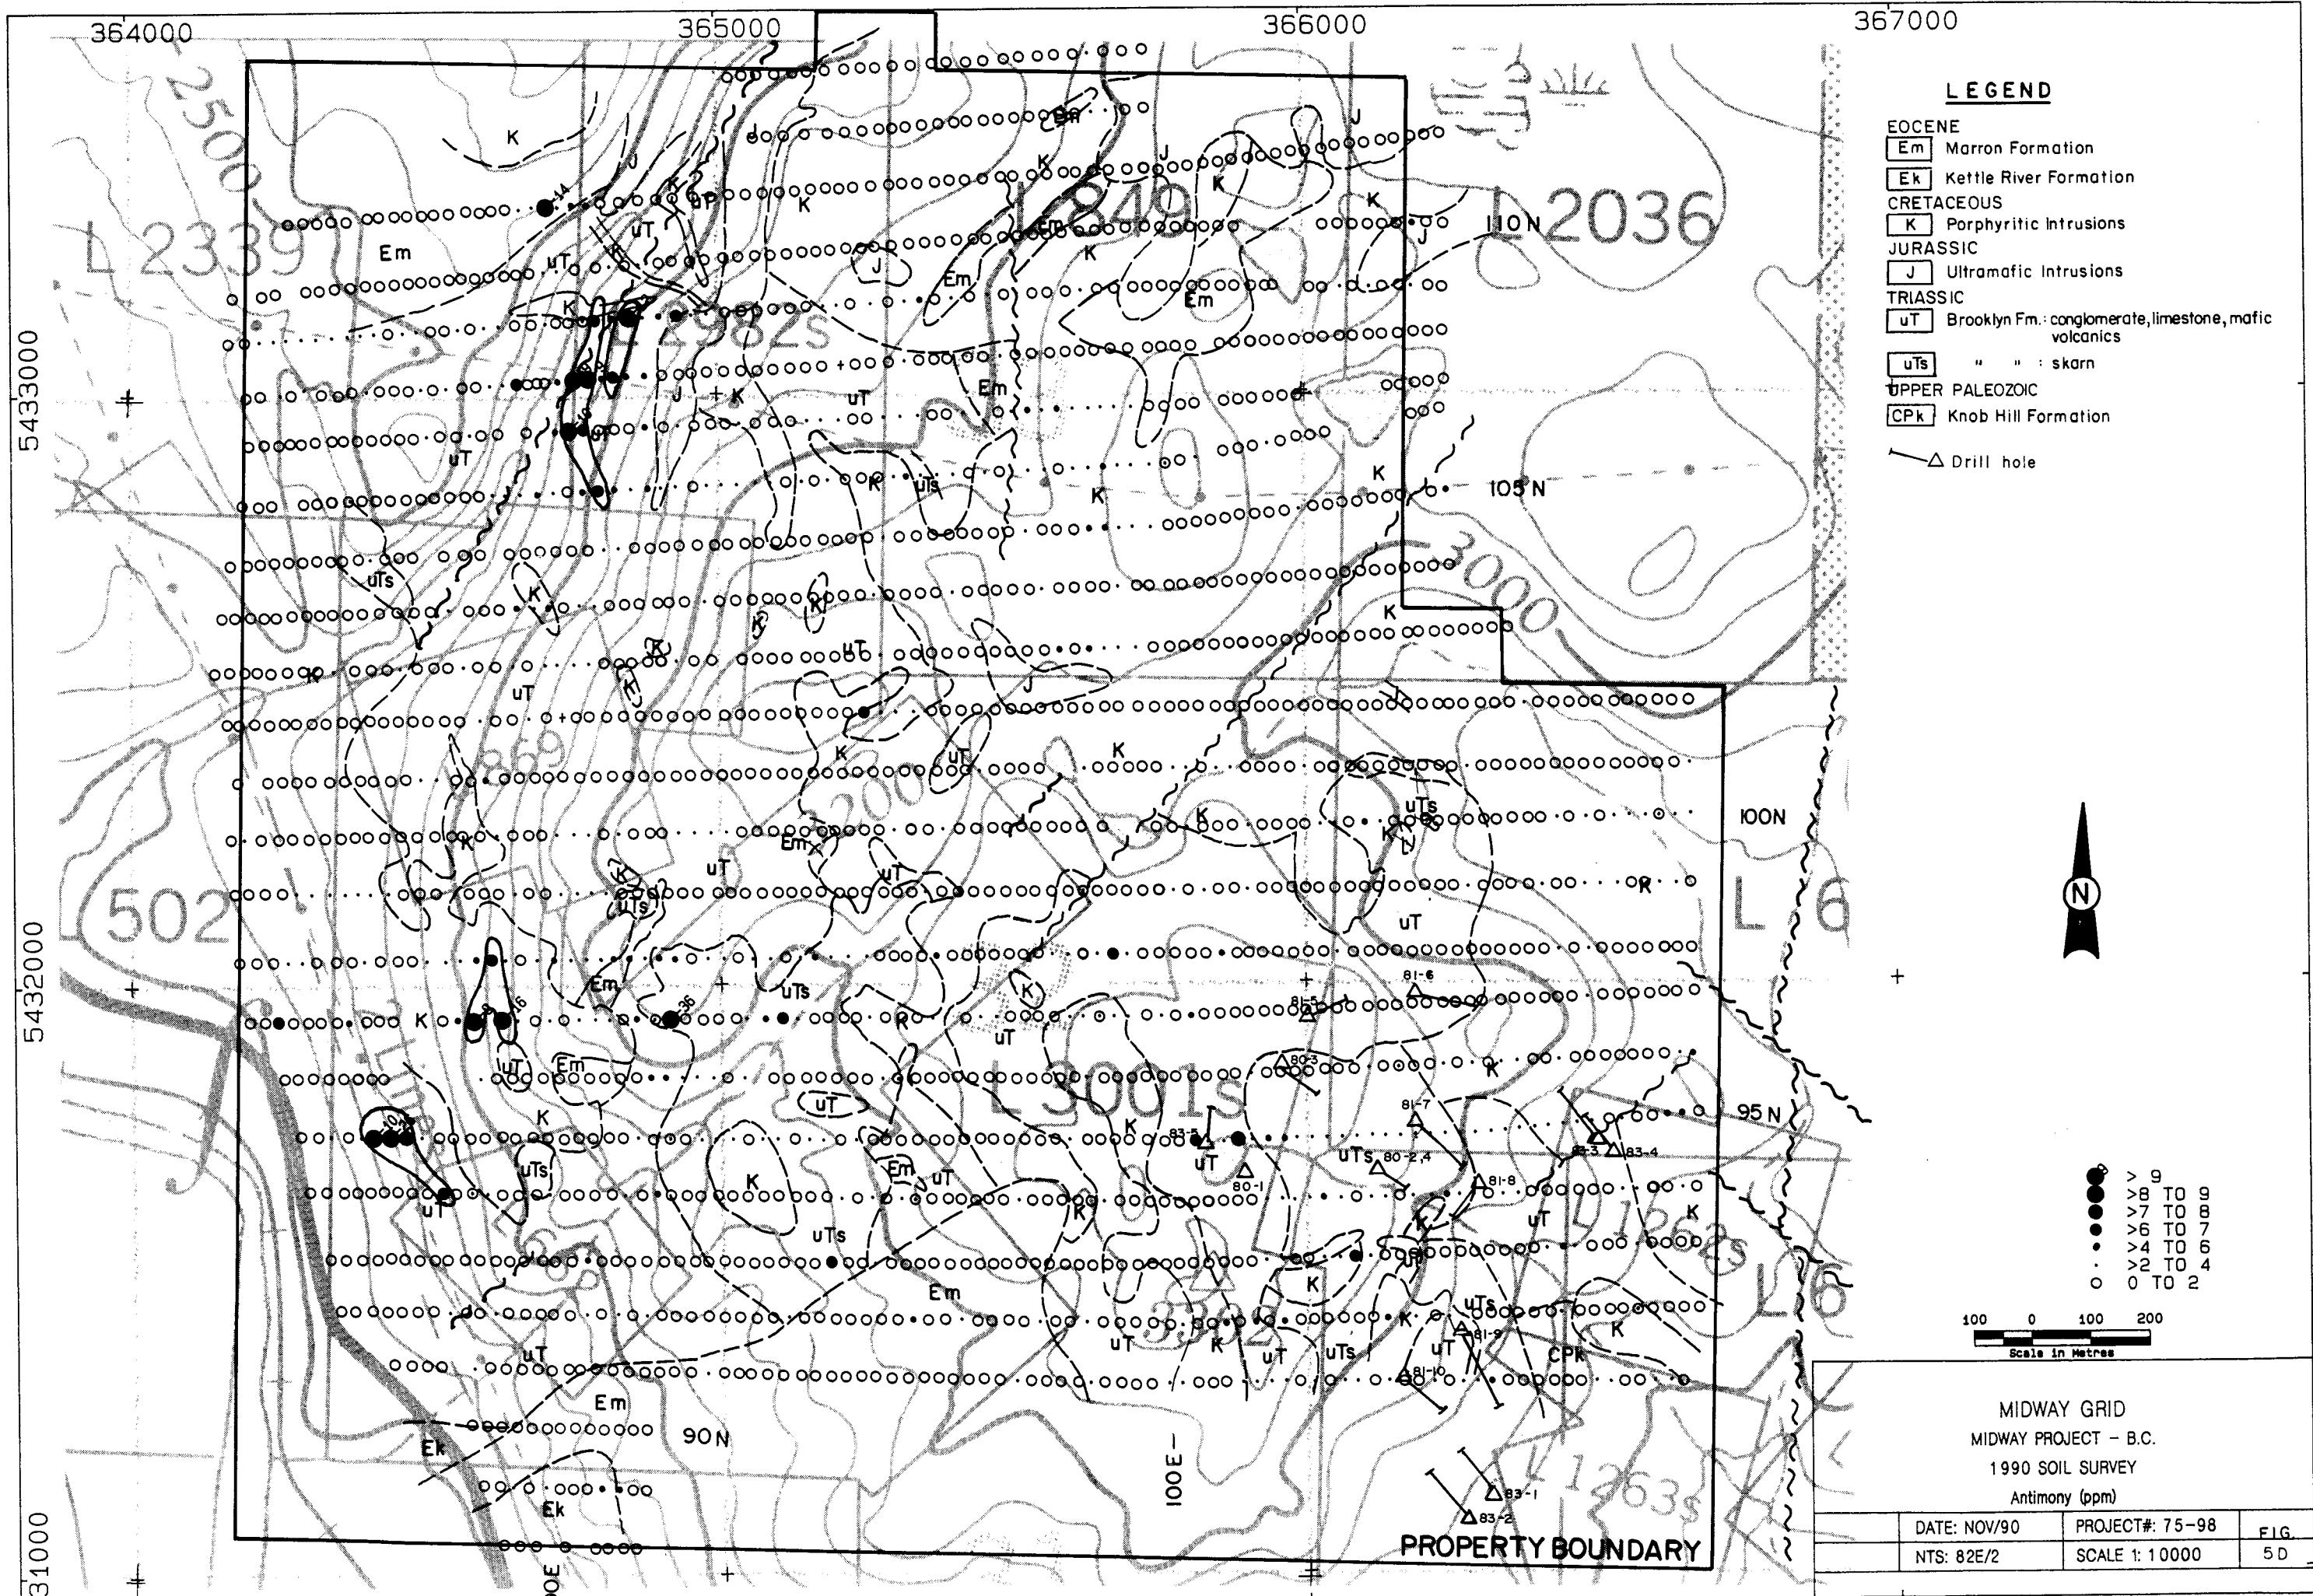 364000
365000
366000
367000
5433000
5432000
31000
LEGEND
EOCENE
Em Marron Formation
Ek Kettle River Formation
CRETACEOUS
K Porphyritic Intrusions
JURASSIC
J Ultramafic Intrusions
TRIASSIC
uT Brooklyn Fm.: conglomerate, limestone, mafic
volcanics
uTs " " : skarn
UPPER PALEOZOIC
CPk Knob Hill Formation
Drill hole
2500
L 2339
L 849
L 2036
L 2982s
3000
869
200
502
L 6
L 3001s
L 1262s
L 6
3302
L 1263s
110N
105N
100N
95N
90N
100E
00E
K
J
Em
uT
uTs
Ek
CPk
14
16
36
81-6
81-5
80-3
81-7
83-5
80-1
80-2,4
81-8
83-3
83-4
81-9
81-10
83-1
83-2
PROPERTY BOUNDARY
N
> 9
>8 TO 9
>7 TO 8
>6 TO 7
>4 TO 6
>2 TO 4
0 TO 2
100 0 100 200
Scale in Metres
MIDWAY GRID
MIDWAY PROJECT - B.C.
1990 SOIL SURVEY
Antimony (ppm)
DATE: NOV/90
PROJECT#: 75-98
FIG.
NTS: 82E/2
SCALE 1: 10000
5D